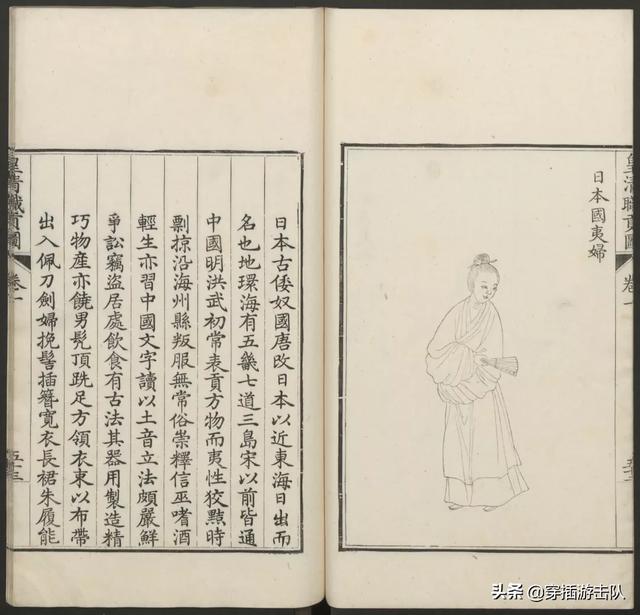 日本國夷婦
皇清職貢圖
卷一
日本古倭奴國唐改日本以近東海日出而
名也地環海有五畿七道三島宋以前皆通
中國明洪武初常表貢方物而夷性狡黠時
剽掠沿海州縣叛服無常俗崇釋信巫嗜酒
輕生亦習中國文字讀以土音立法頗嚴鮮
爭訟竊盜居處飲食有古法其器用製造精
巧物產亦饒男髠頂跣足方領衣束以布帶
出入佩刀劍婦挽髻插簪寬衣長裙朱履能
皇清職貢圖
卷一
五十三
头条 @穿插游击队